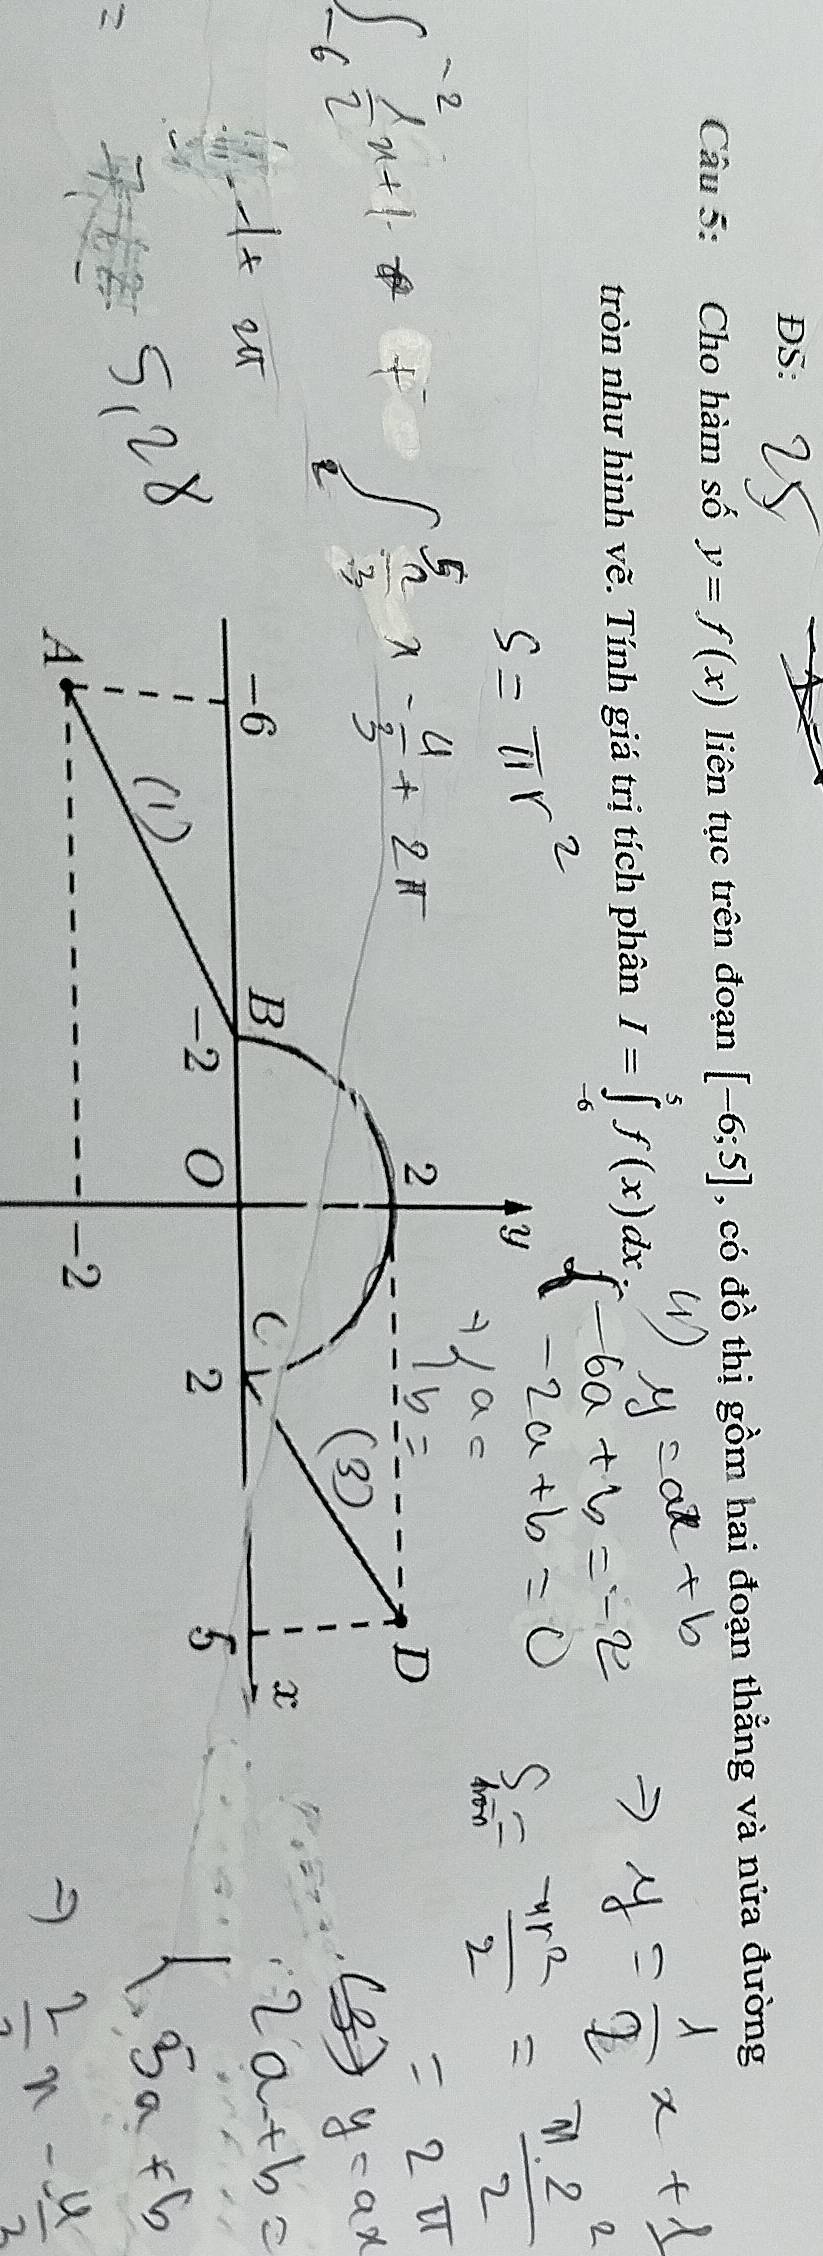 ĐS: 25
Câu 5: Cho hàm số y = f(x) liên tục trên đoạn [−6;5], có đồ thị gồm hai đoạn thẳng và nửa đường
tròn như hình vẽ. Tính giá trị tích phân I = ∫_{-6}^{5} f(x)dx.
(1) y = ax + b
{ -6a + b = -2
-2a + b = 0
=> y = 1/2 x + 1
=> { a =
b =
S = πr²
S tròn = πr²/2 = π.2²/2
= 2π
(3) y = ax
{ 2a + b =
5a + b
=> 2/3 x - 4/3
∫_{-6}^{-2} 1/2 x + 1 + ∫_{2}^{5} 2/3 x - 4/3 + 2π
-1 + 2π
= 5,28
y
2
D
(3)
B
C
-6
-2
O
2
5
x
(1)
A
-2